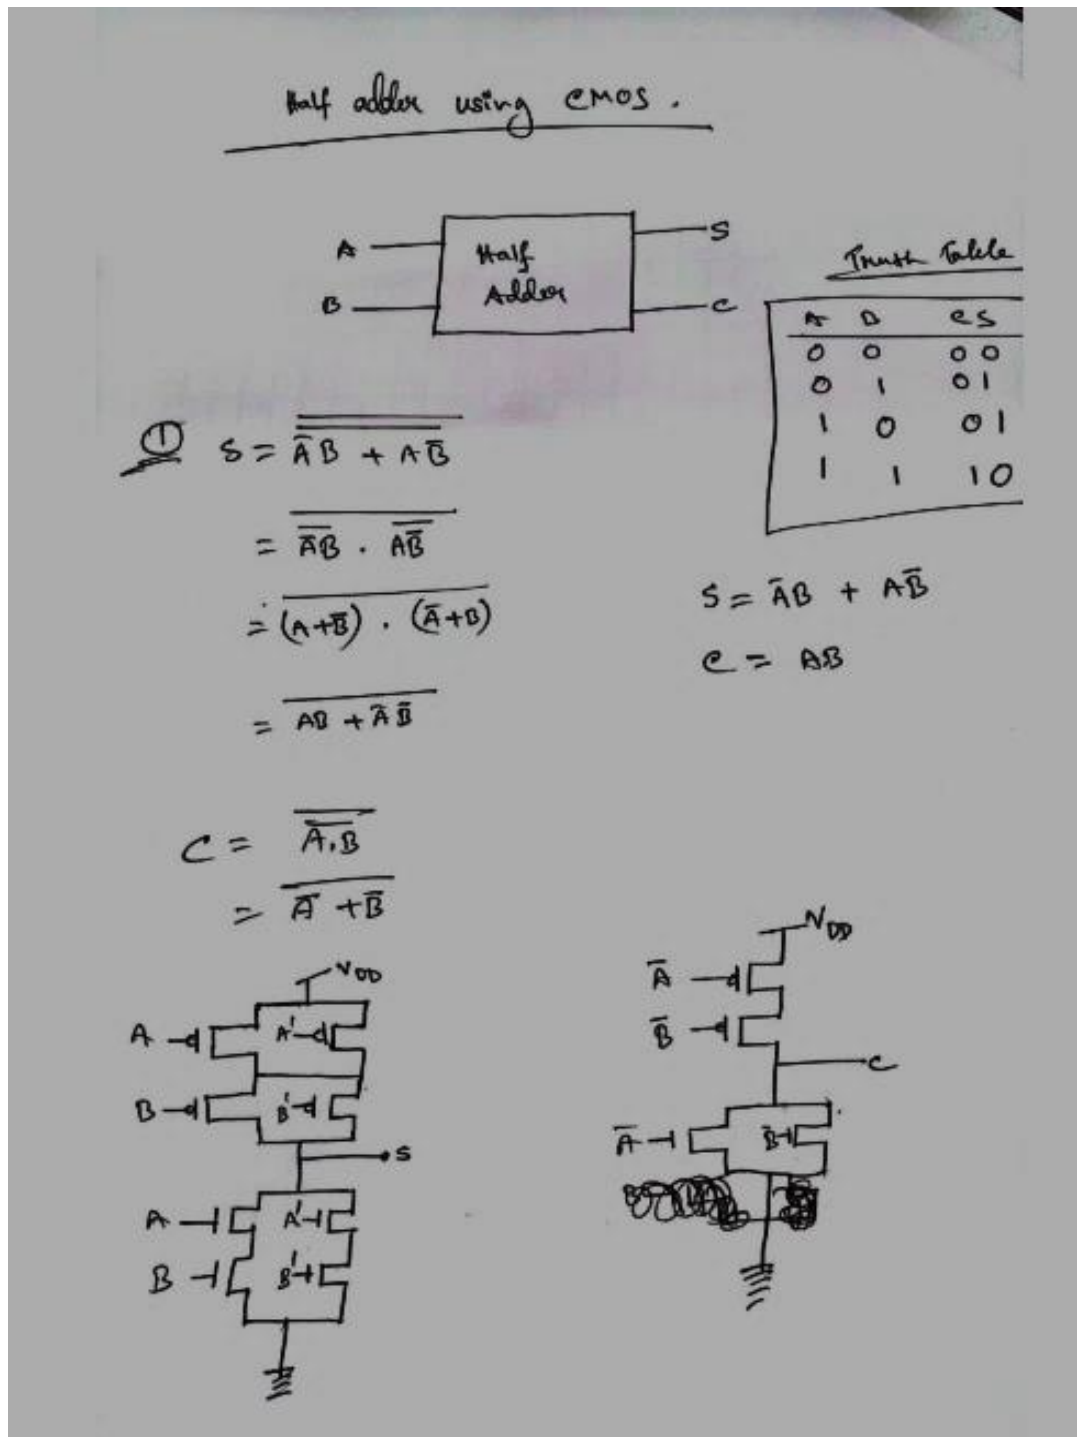 Half adder using CMOS.
A
B
Half
Adder
S
C
Truth Table
A B C S
0 0 0 0
0 1 0 1
1 0 0 1
1 1 1 0
① S = \overline{\overline{\bar{A}B + A\bar{B}}}
= \overline{\overline{\bar{A}B} . \overline{A\bar{B}}}
= \overline{(A+\bar{B}) . (\bar{A}+B)}
= \overline{AB + \bar{A}\bar{B}}
S = \bar{A}B + A\bar{B}
C = AB
C = \overline{\overline{A.B}}
= \overline{\bar{A} + \bar{B}}
VDD
A A'
B B'
S
A A'
B B'
VDD
\bar{A}
\bar{B}
C
\bar{A} \bar{B}